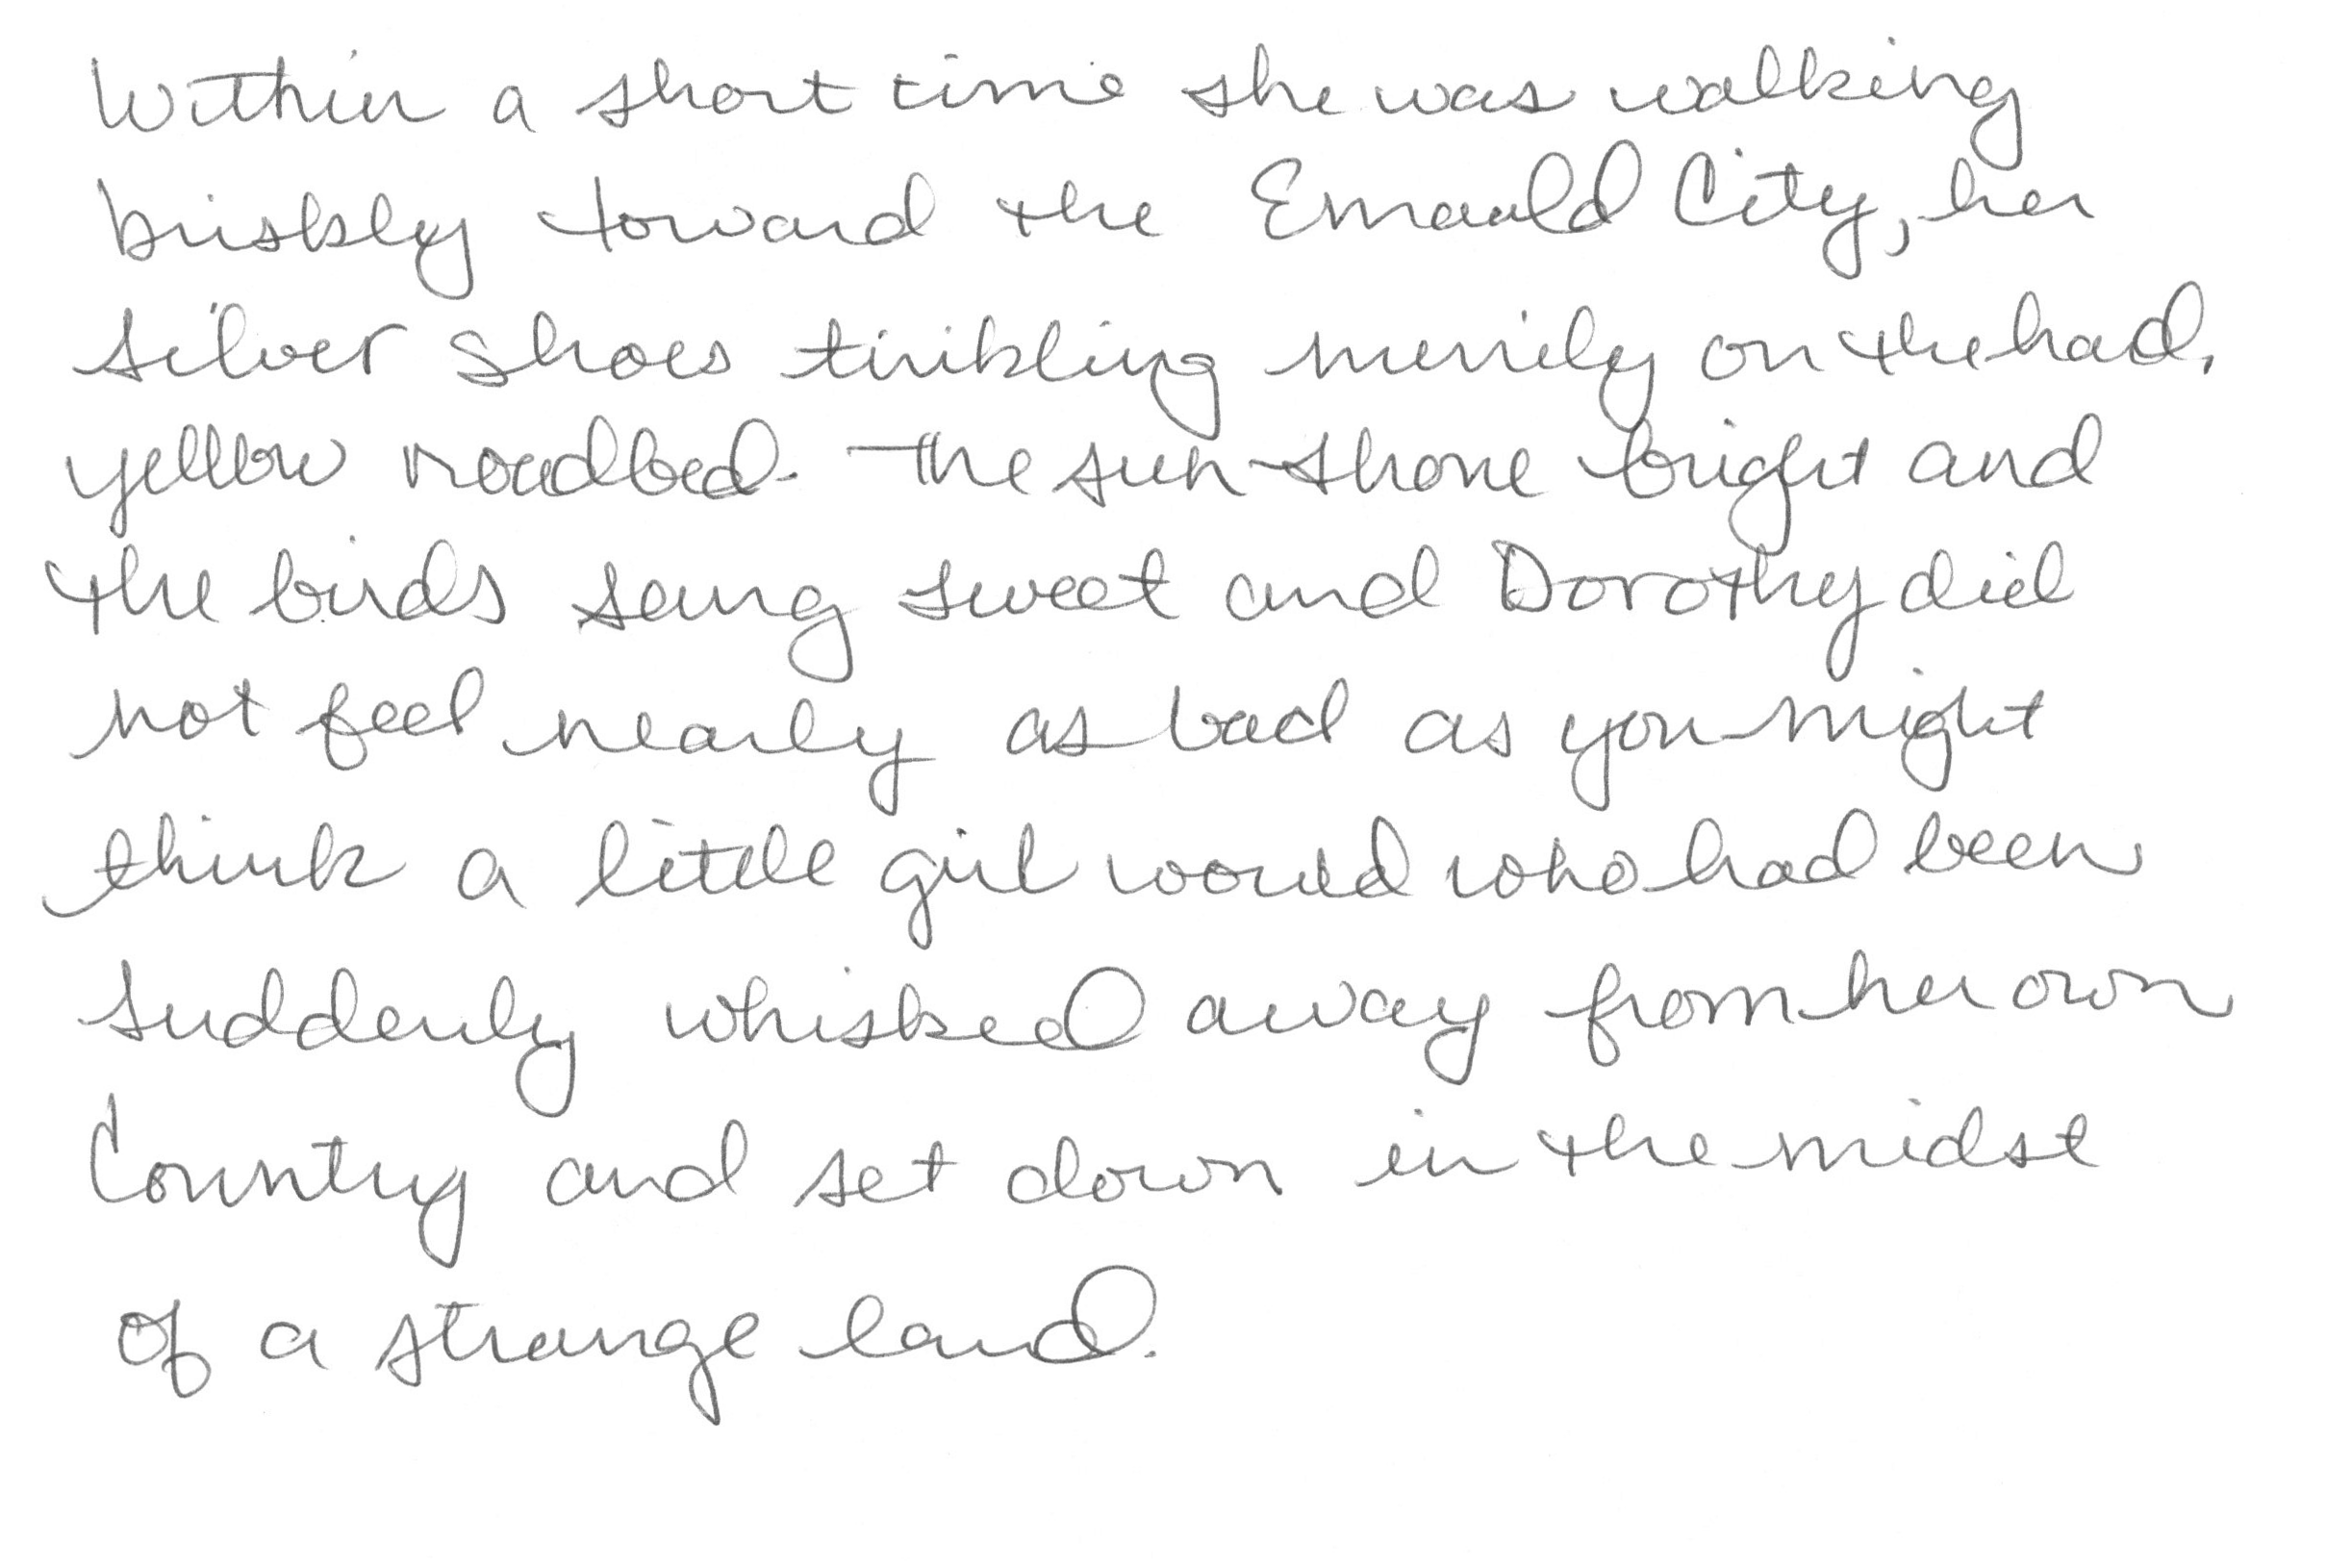 Within a short time she was walking
briskly toward the Emerald City, her
silver shoes tinkling merrily on the hard,
yellow roadbed. The sun shone bright and
the birds sang sweet and Dorothy did
not feel nearly as bad as you might
think a little girl would who had been
suddenly whisked away from her own
Country and set down in the midst
of a strange land.